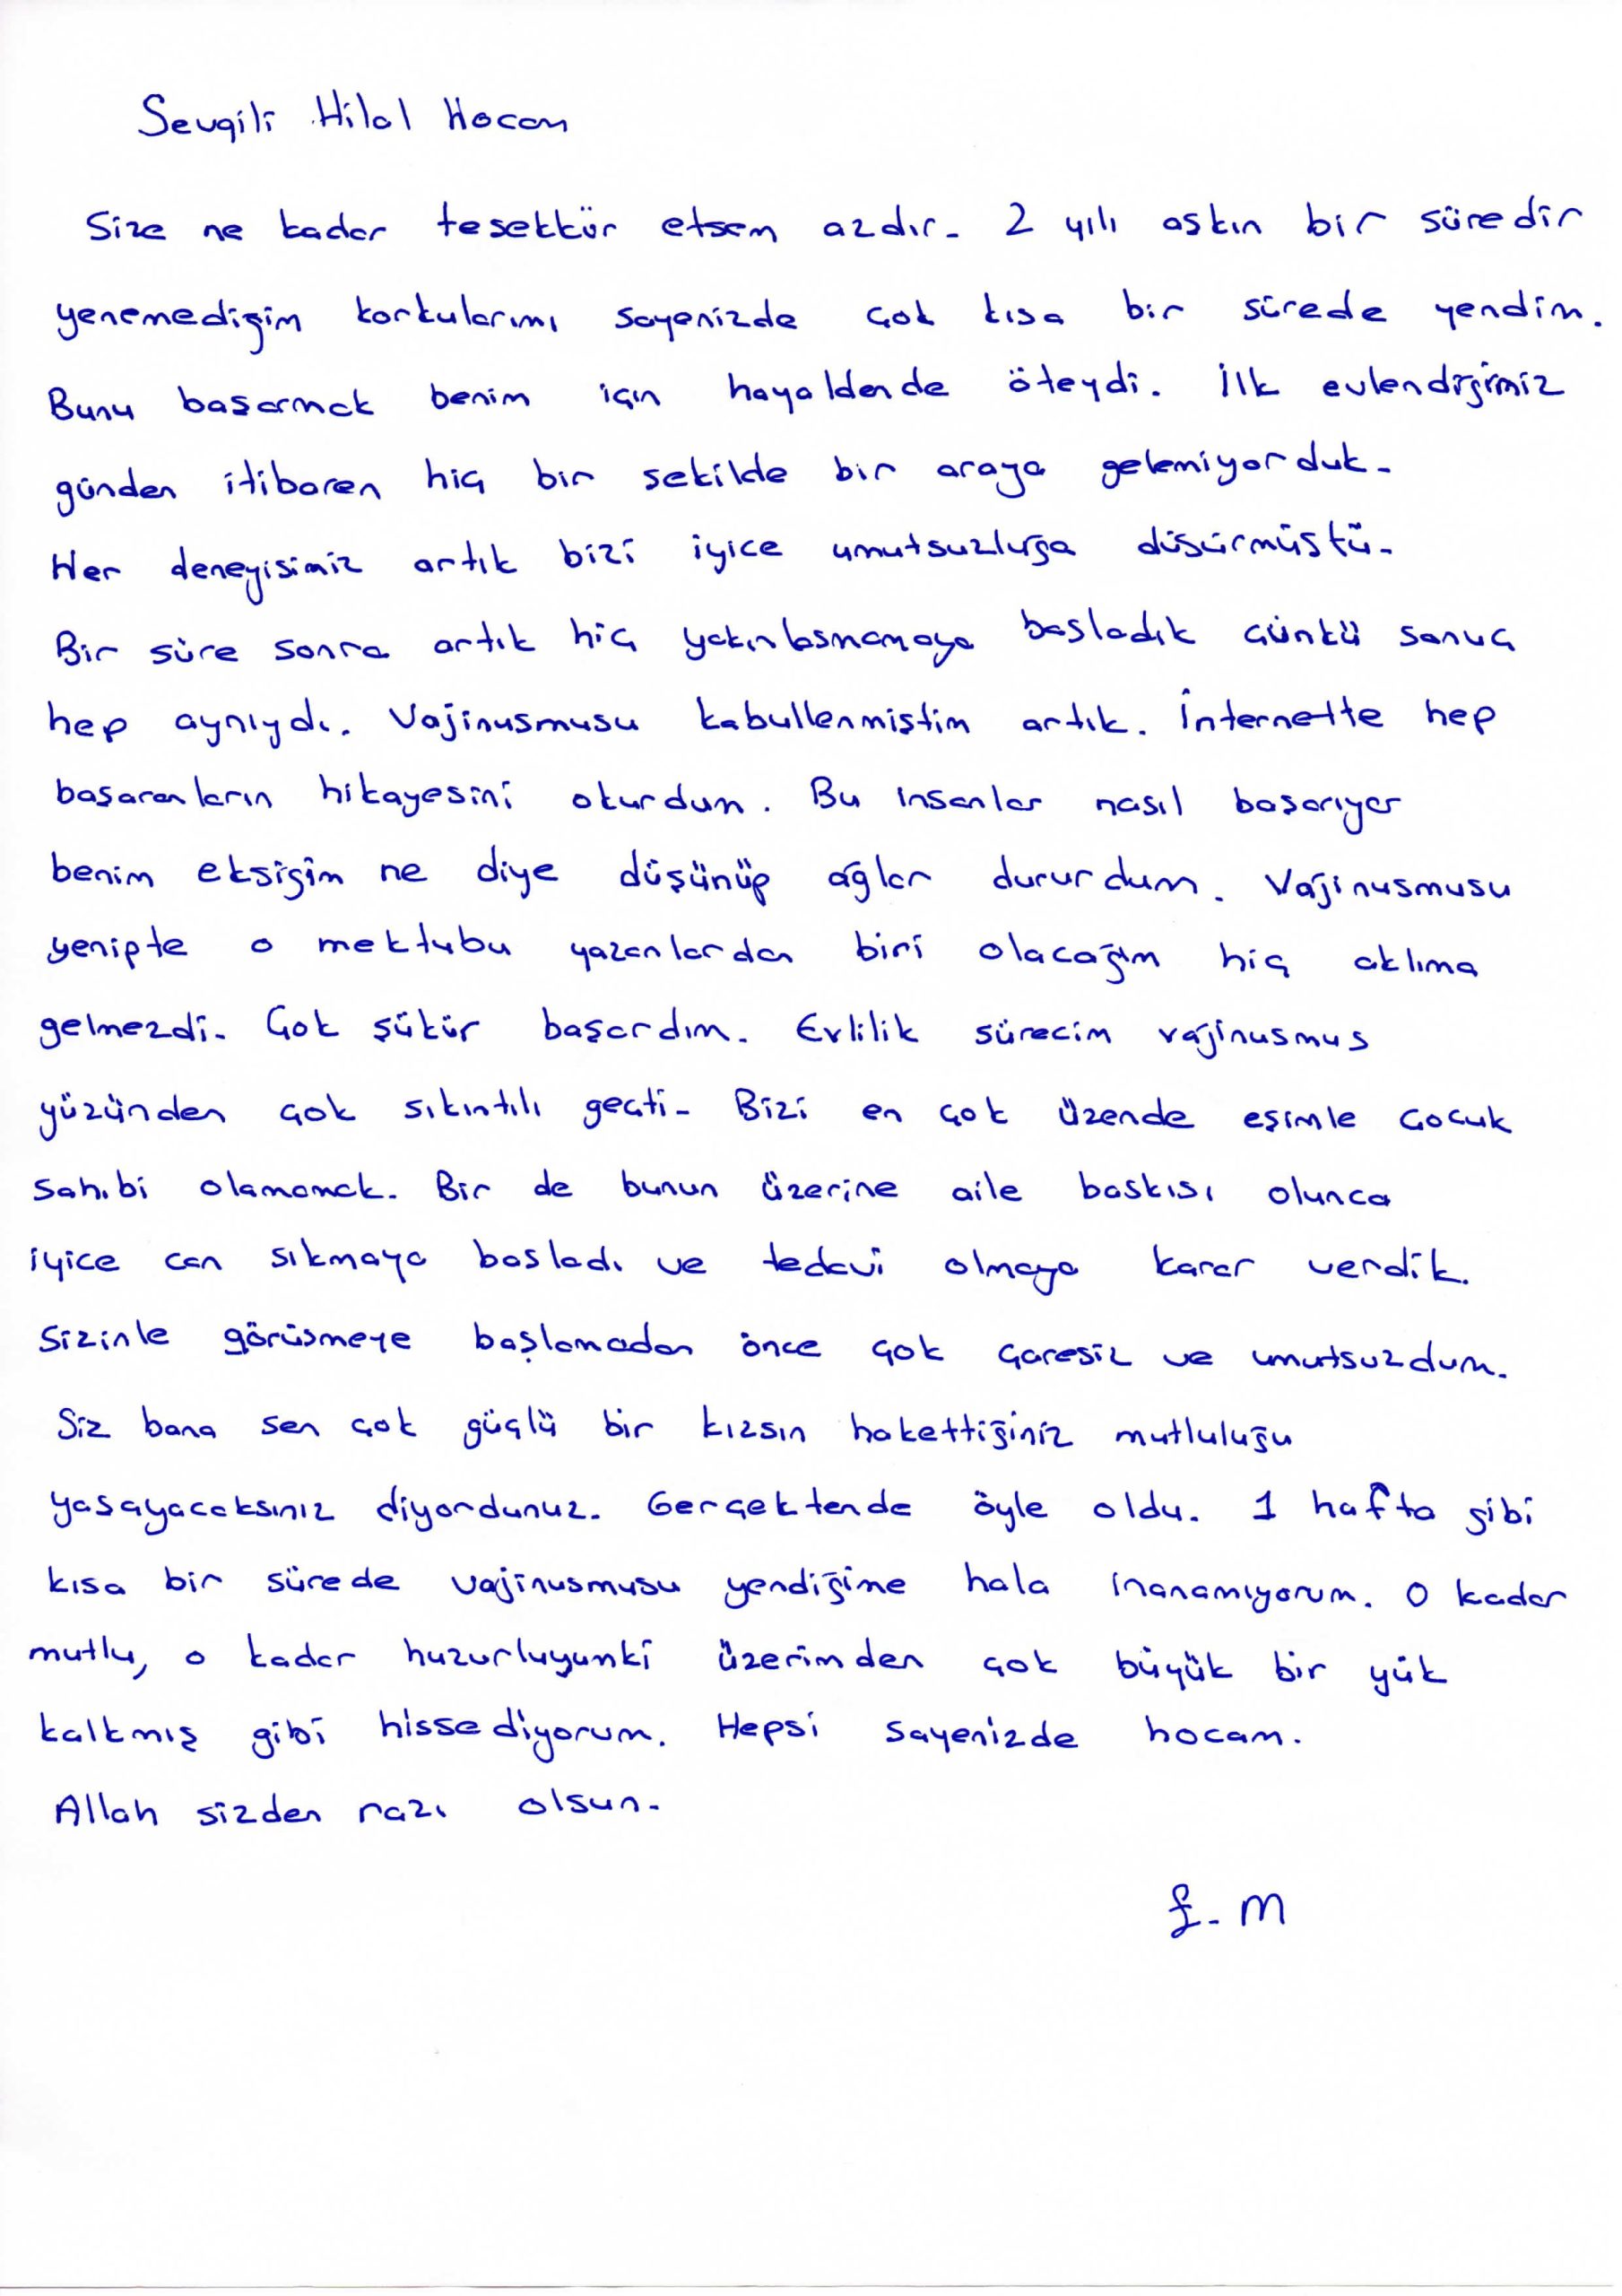 Sevgili Hilal Hocam
Size ne kadar tesekkür etsem azdır. 2 yılı askın bir süredir
yenemediğim korkularımı sayenizde çok kısa bir sürede yendim.
Bunu basarmak benim için hayaldende öteydi. İlk evlendiğimiz
günden itibaren hiç bir sekilde bir araya gelemiyorduk.
Her deneyisimiz artık bizi iyice umutsuzluğa düsürmüstü.
Bir süre sonra artık hiç yakınlasmamaya basladık çünkü sonuç
hep aynıydı. Vajinusmusu kabullenmistim artık. İnternette hep
basaranların hikayesini okurdum. Bu insanlar nasıl basarıyor
benim eksiğim ne diye düşünüp ağlar dururdum. Vajinusmusu
yenipte o mektubu yazanlardan biri olacağım hiç aklıma
gelmezdi. Çok şükür başardım. Evlilik sürecim vajinusmus
yüzünden çok sıkıntılı geçti. Bizi en çok üzende eşimle çocuk
sahibi olamamak. Bir de bunun üzerine aile baskısı olunca
iyice can sıkmaya basladı ve tedavi olmaya karar verdik.
Sizinle görüsmeye başlamadan önce çok çaresiz ve umutsuzdum.
Siz bana sen çok güçlü bir kızsın hakettiğiniz mutluluğu
yasayacaksınız diyordunuz. Gerçektende öyle oldu. 1 hafta gibi
kısa bir sürede vajinusmusu yendiğime hala inanamıyorum. O kadar
mutlu, o kadar huzurluyumki üzerimden çok büyük bir yük
kalkmış gibi hissediyorum. Hepsi sayenizde hocam.
Allah sizden razı olsun.
£. M